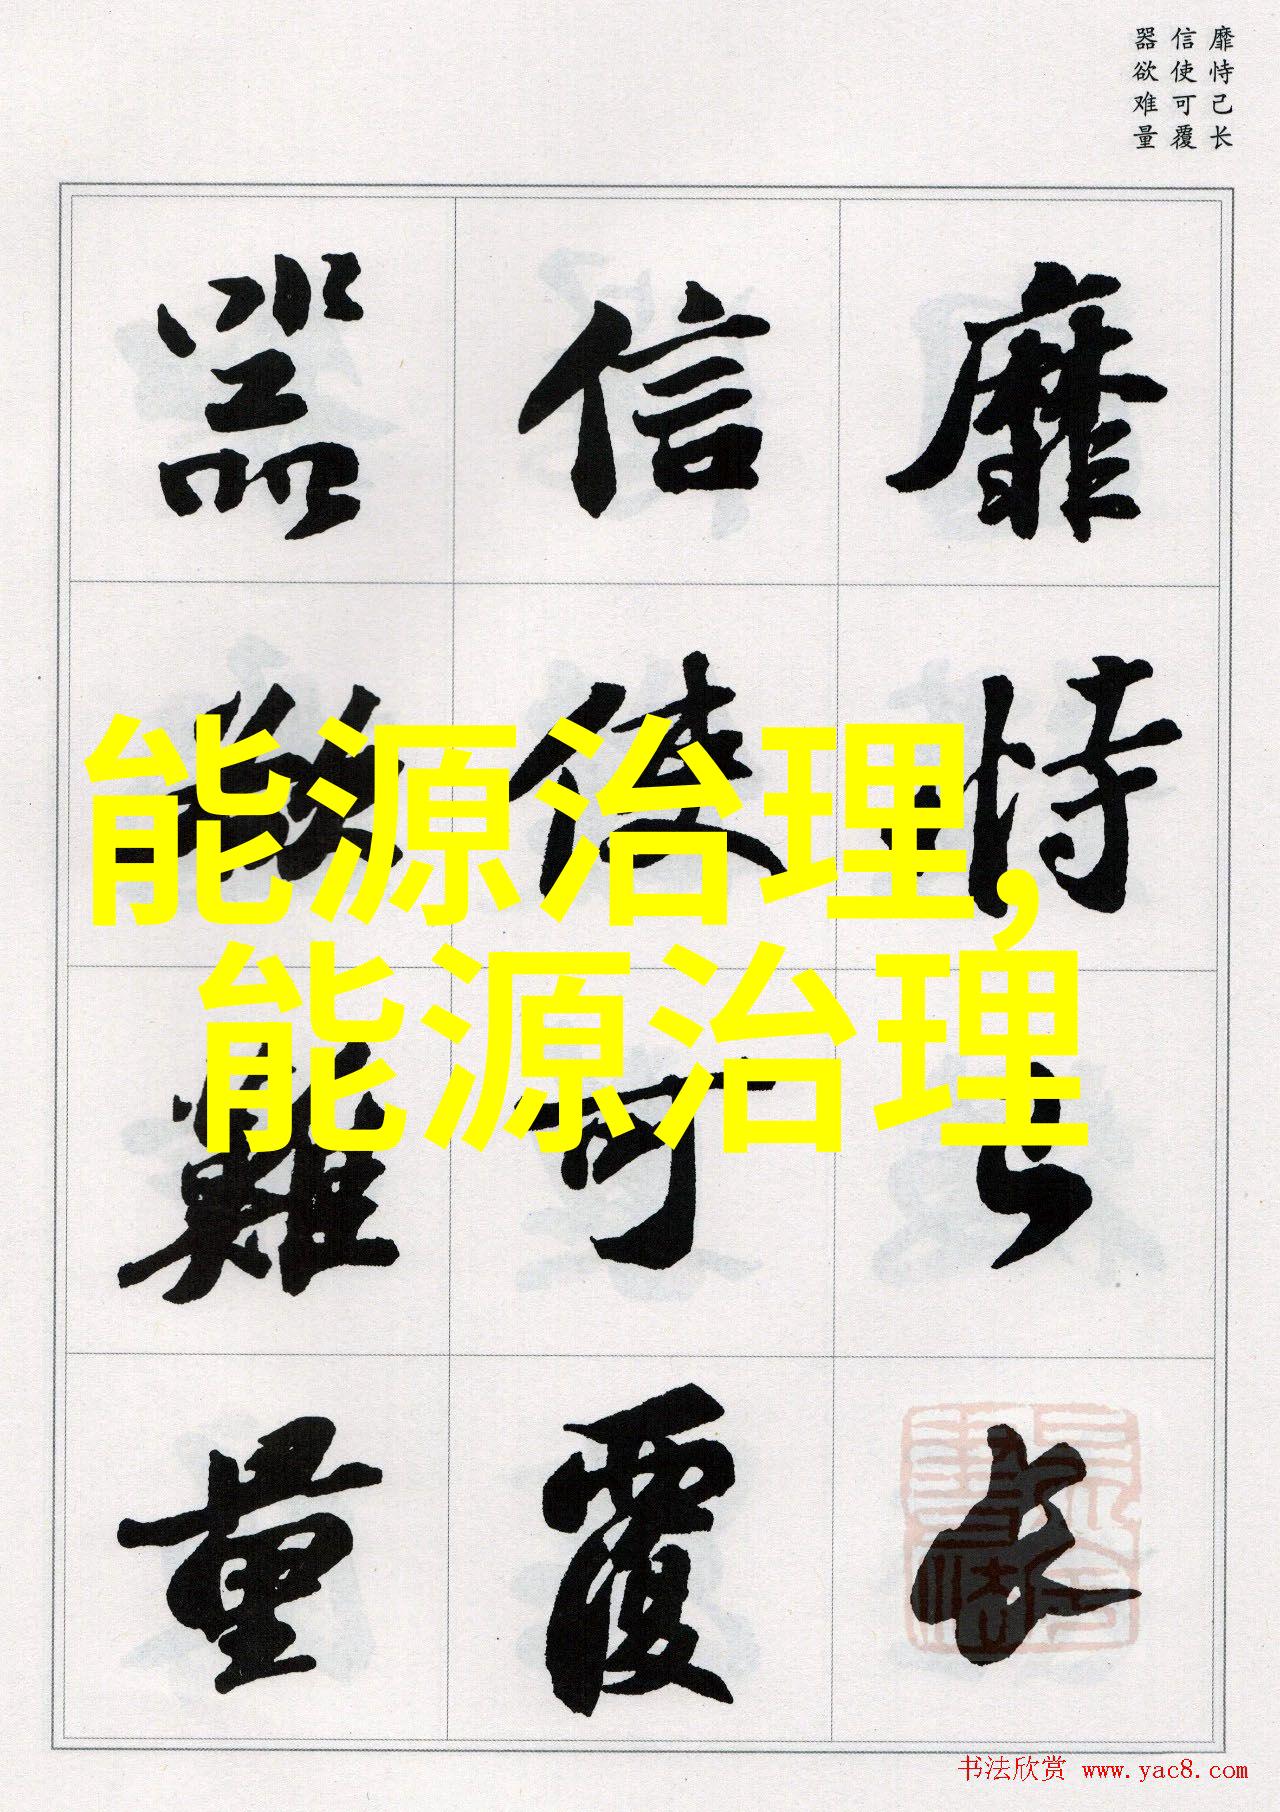 靡恃己长
信使可覆
器欲难量
靡恃己长
信使可覆
器欲難量
能源治理,
能源治理
书法欣赏 www.yac8.com